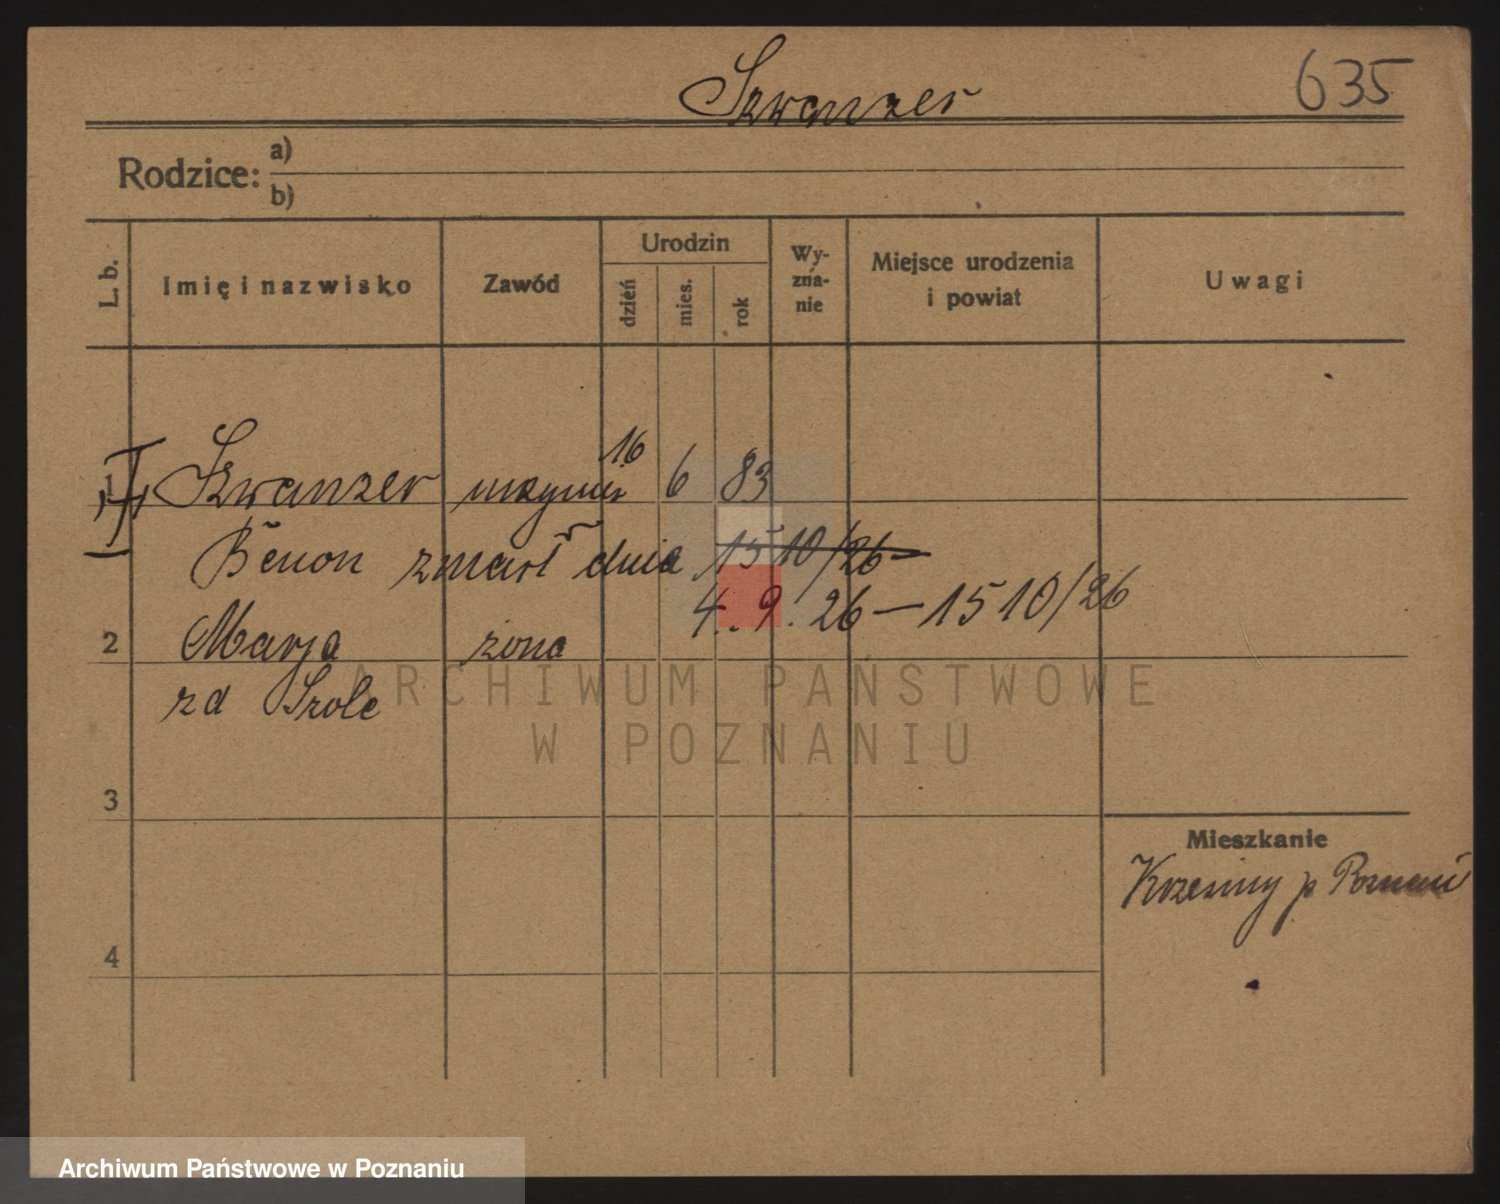 Szwanzer 635
Rodzice: a)
b)
L. b. Imię i nazwisko Zawód Urodzin dzień mies. rok Wy-zna-nie Miejsce urodzenia i powiat Uwagi
16
1 Szwanzer 6 83
Benon zmarł dnia 15 10/26
4. 9. 26 — 15 10/26
2 Marja żona
zd Szolc
ARCHIWUM PAŃSTWOWE
W POZNANIU
3
Mieszkanie
Krzesiny p Poznań
4
Archiwum Państwowe w Poznaniu